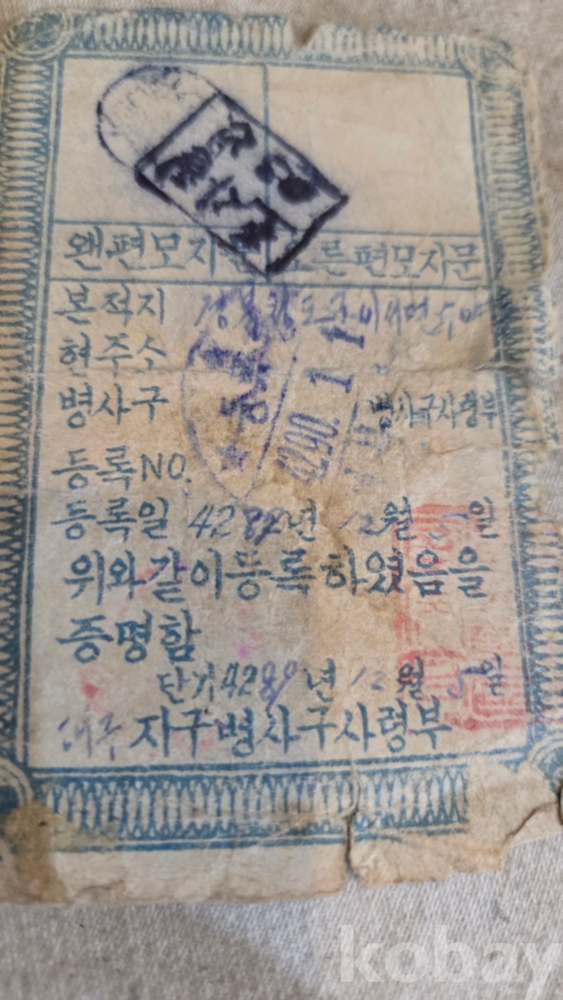 왠편모지문 오른편모지문
본적지 경북청도군이서면
현주소
병사구 병사구사령부
4290. 1. 1
등록NO.
등록일 4289년 12월 5일
위와같이등록하였음을
증명함
단기4289년 12월 5일
지구병사구사령부
kobay